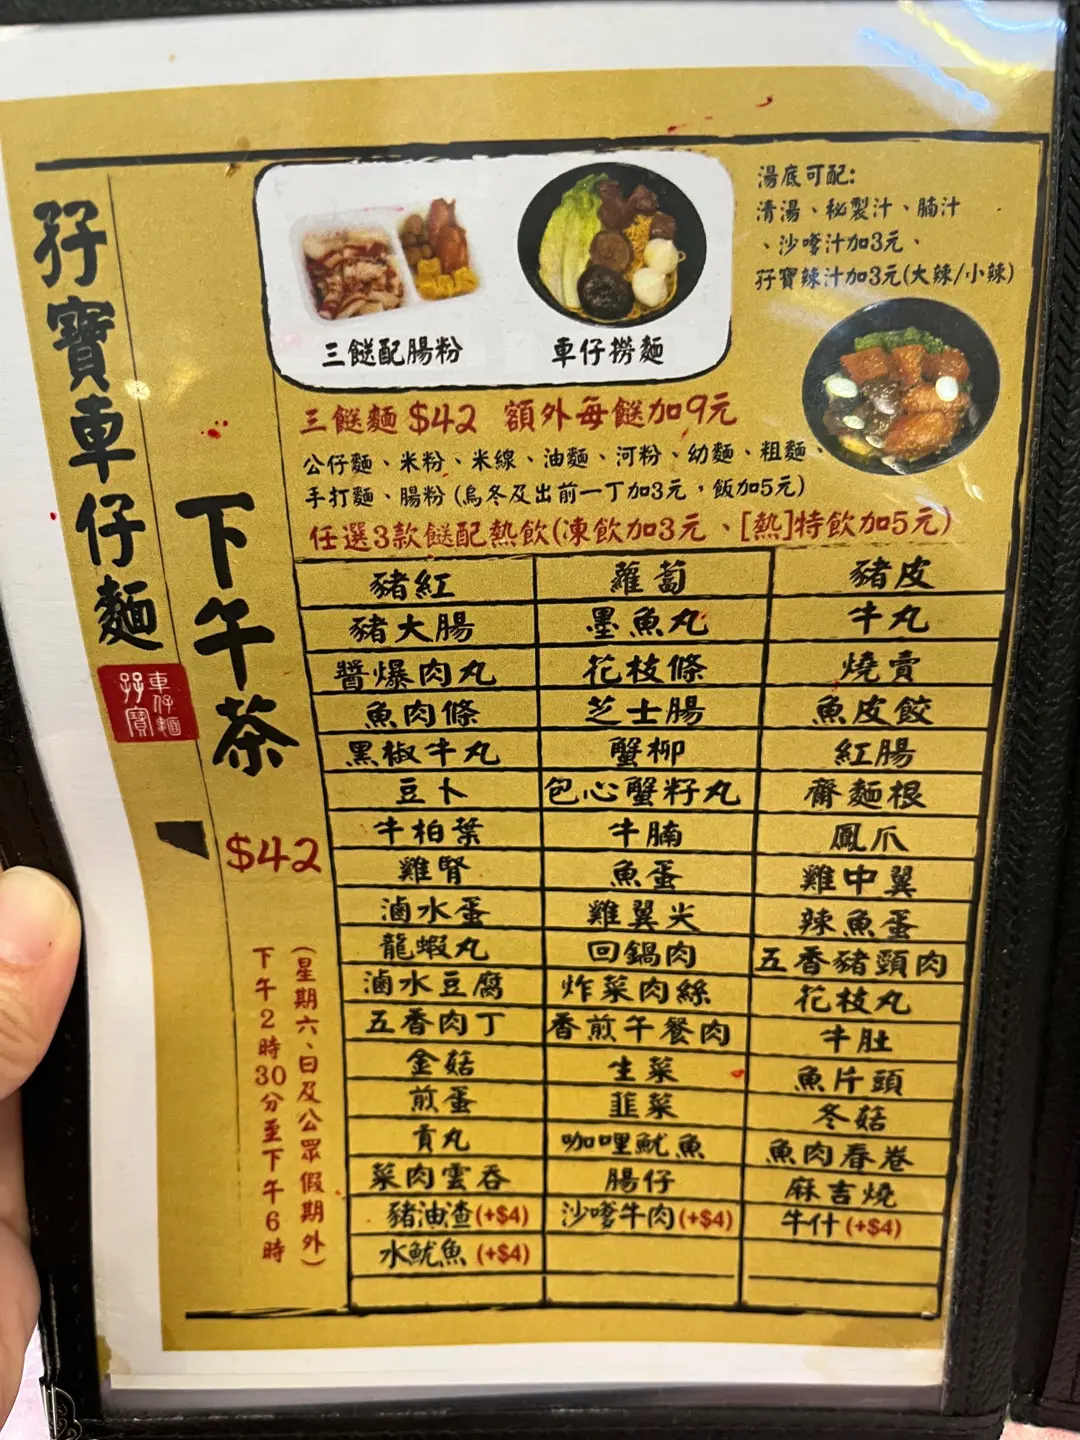 孖寶車仔麵
孖寶
車仔麵
下午茶
$42
(星期六、日及公眾假期外)
下午2時30分至下午6時
三餸配腸粉
車仔撈麵
湯底可配:
清湯、秘製汁、腩汁
、沙嗲汁加3元、
孖寶辣汁加3元(大辣/小辣)
三餸麵 $42 額外每餸加9元
公仔麵、米粉、米線、油麵、河粉、幼麵、粗麵、
手打麵、腸粉 (烏冬及出前一丁加3元,飯加5元)
任選3款餸配熱飲(凍飲加3元、[熱]特飲加5元)
豬紅 蘿蔔 豬皮
豬大腸 墨魚丸 牛丸
醬爆肉丸 花枝條 燒賣
魚肉條 芝士腸 魚皮餃
黑椒牛丸 蟹柳 紅腸
豆卜 包心蟹籽丸 齋麵根
牛柏葉 牛腩 鳳爪
雞腎 魚蛋 雞中翼
滷水蛋 雞翼尖 辣魚蛋
龍蝦丸 回鍋肉 五香豬頸肉
滷水豆腐 炸菜肉絲 花枝丸
五香肉丁 香煎午餐肉 牛肚
金菇 生菜 魚片頭
煎蛋 韮菜 冬菇
貢丸 咖哩魷魚 魚肉春卷
菜肉雲吞 腸仔 麻吉燒
豬油渣(+$4) 沙嗲牛肉(+$4) 牛什(+$4)
水魷魚(+$4)